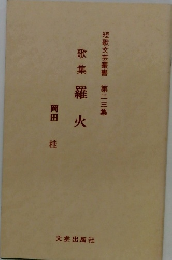 短歌文芸叢書 第二三集
歌集 羅火
岡田 桂
大衆出版社